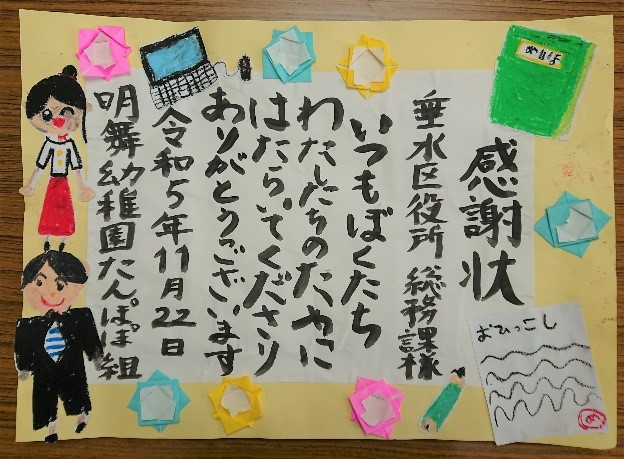 感謝状
垂水区役所 総務課様
いつもぼくたち
わたしたちのために
はたらいてくださり
ありがとうございます
令和5年11月22日
明舞幼稚園たんぽぽ組
おひっこし